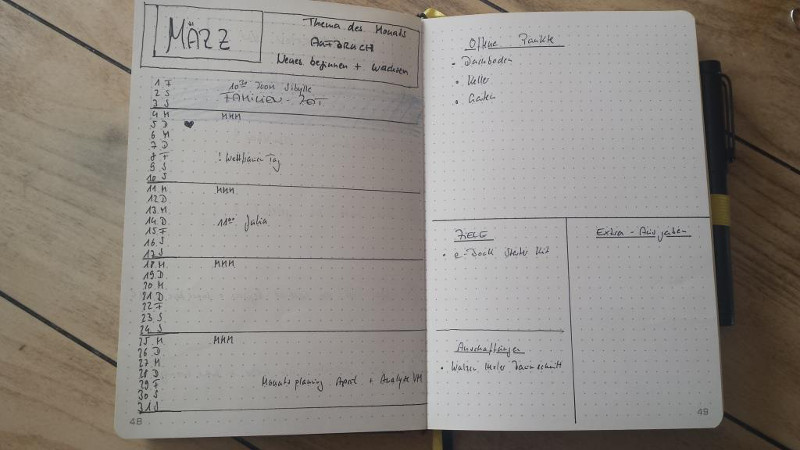 MÄRZ
Thema des Monats
AUFBRUCH
Neues beginnen + wachsen
1 F 10 Zoom Sibylle
2 S FAMILIEN-
3 S
4 M MMM
5 D ♥
6 M
7 D
8 F ! Weltfrauen Tag
9 S
10 S
11 M MMM
12 D
13 M
14 D 11 Julia
15 F
16 S
17 S
18 M MMM
19 D
20 M
21 D
22 F
23 S
24 S
25 M MMM
26 D
27 M
28 D
29 F Monatsplanung April + Analyse VM
30 S
31 S
48
Offene Punkte
• Dachboden
• Keller
• Garten
ZIELE
• e-Book Starter Kit
Extra-Ausgaben
Anschaffungen
• Walzen
49